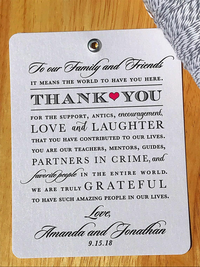 To our Family and Friends
IT MEANS THE WORLD TO HAVE YOU HERE.
THANK YOU
FOR THE SUPPORT, ANTICS, encouragement,
LOVE and LAUGHTER
THAT YOU HAVE CONTRIBUTED TO OUR LIVES.
YOU ARE OUR TEACHERS, MENTORS, GUIDES,
PARTNERS IN CRIME, and
favorite people IN THE ENTIRE WORLD.
WE ARE TRULY GRATEFUL
TO HAVE SUCH AMAZING PEOPLE IN OUR LIVES.
Love,
Amanda and Jonathan
9.15.18